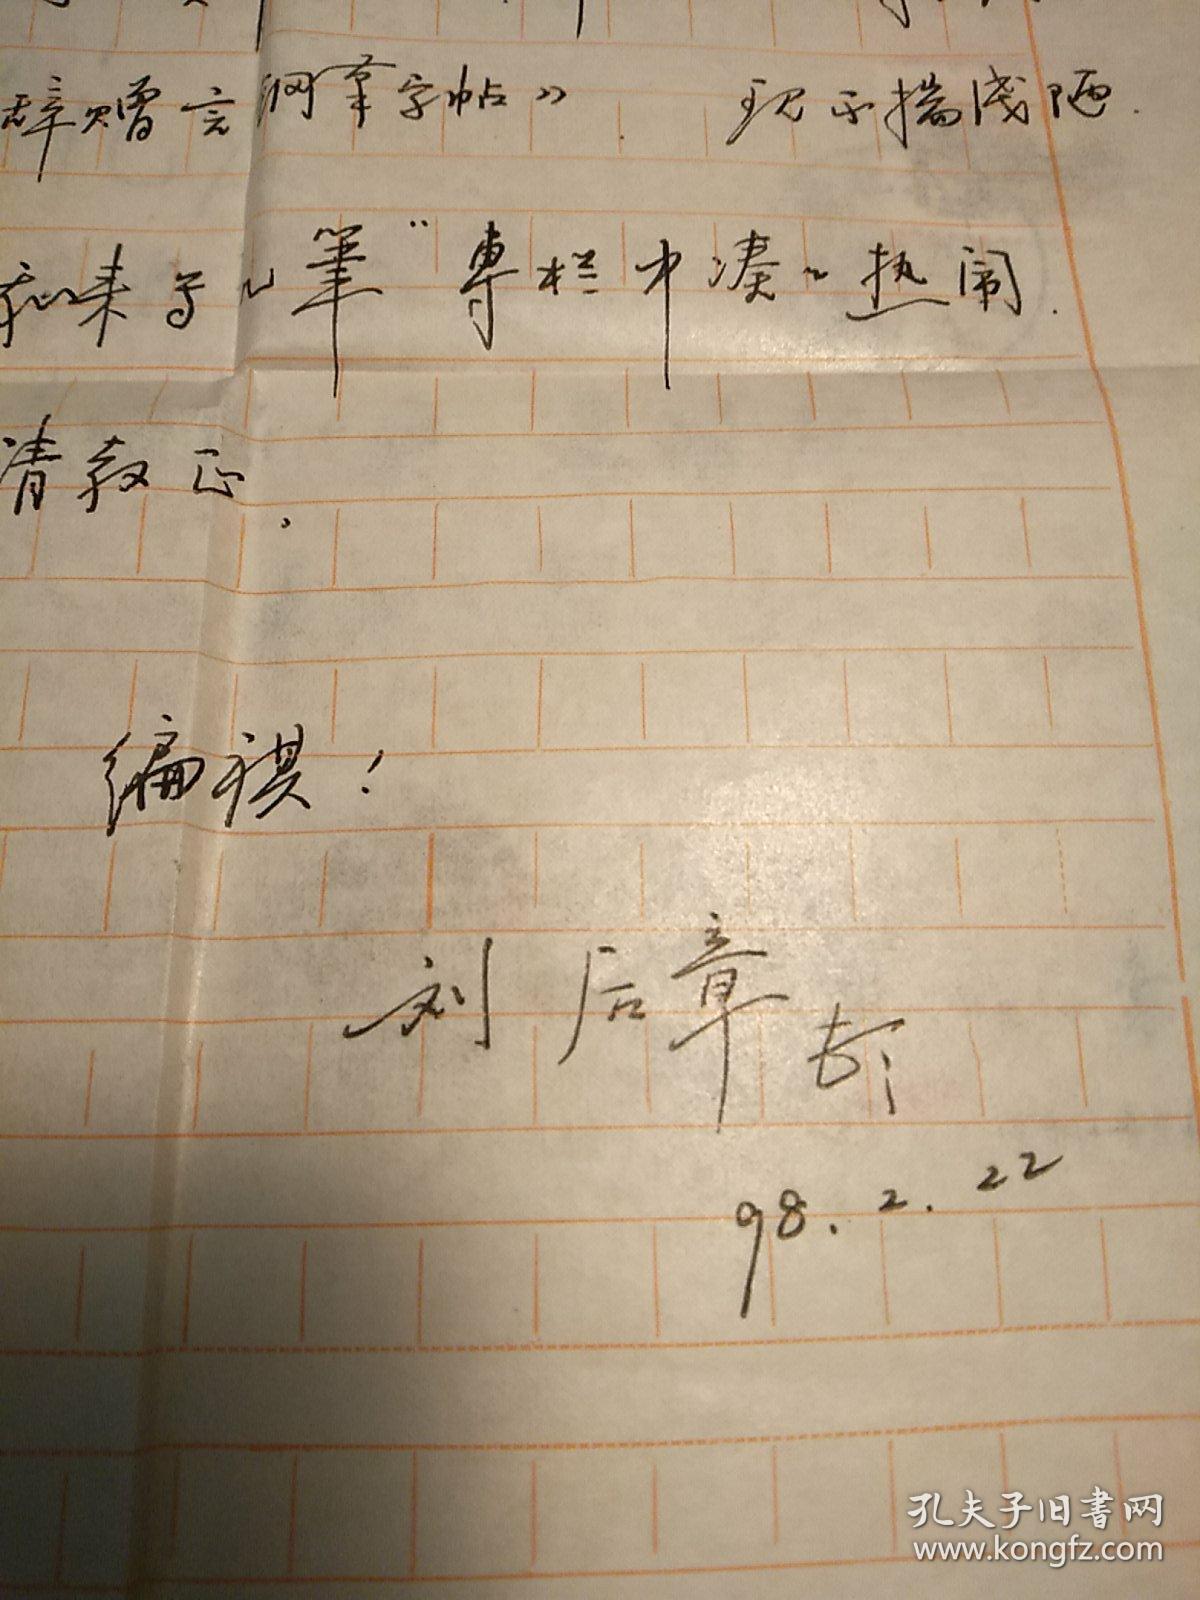 辞赠言钢笔字帖》. 现不揣浅陋.
和来于"筆"專栏中凑凑热闹.
请教正.
编祺!
刘后章
98.2.22
孔夫子旧书网
www.kongfz.com